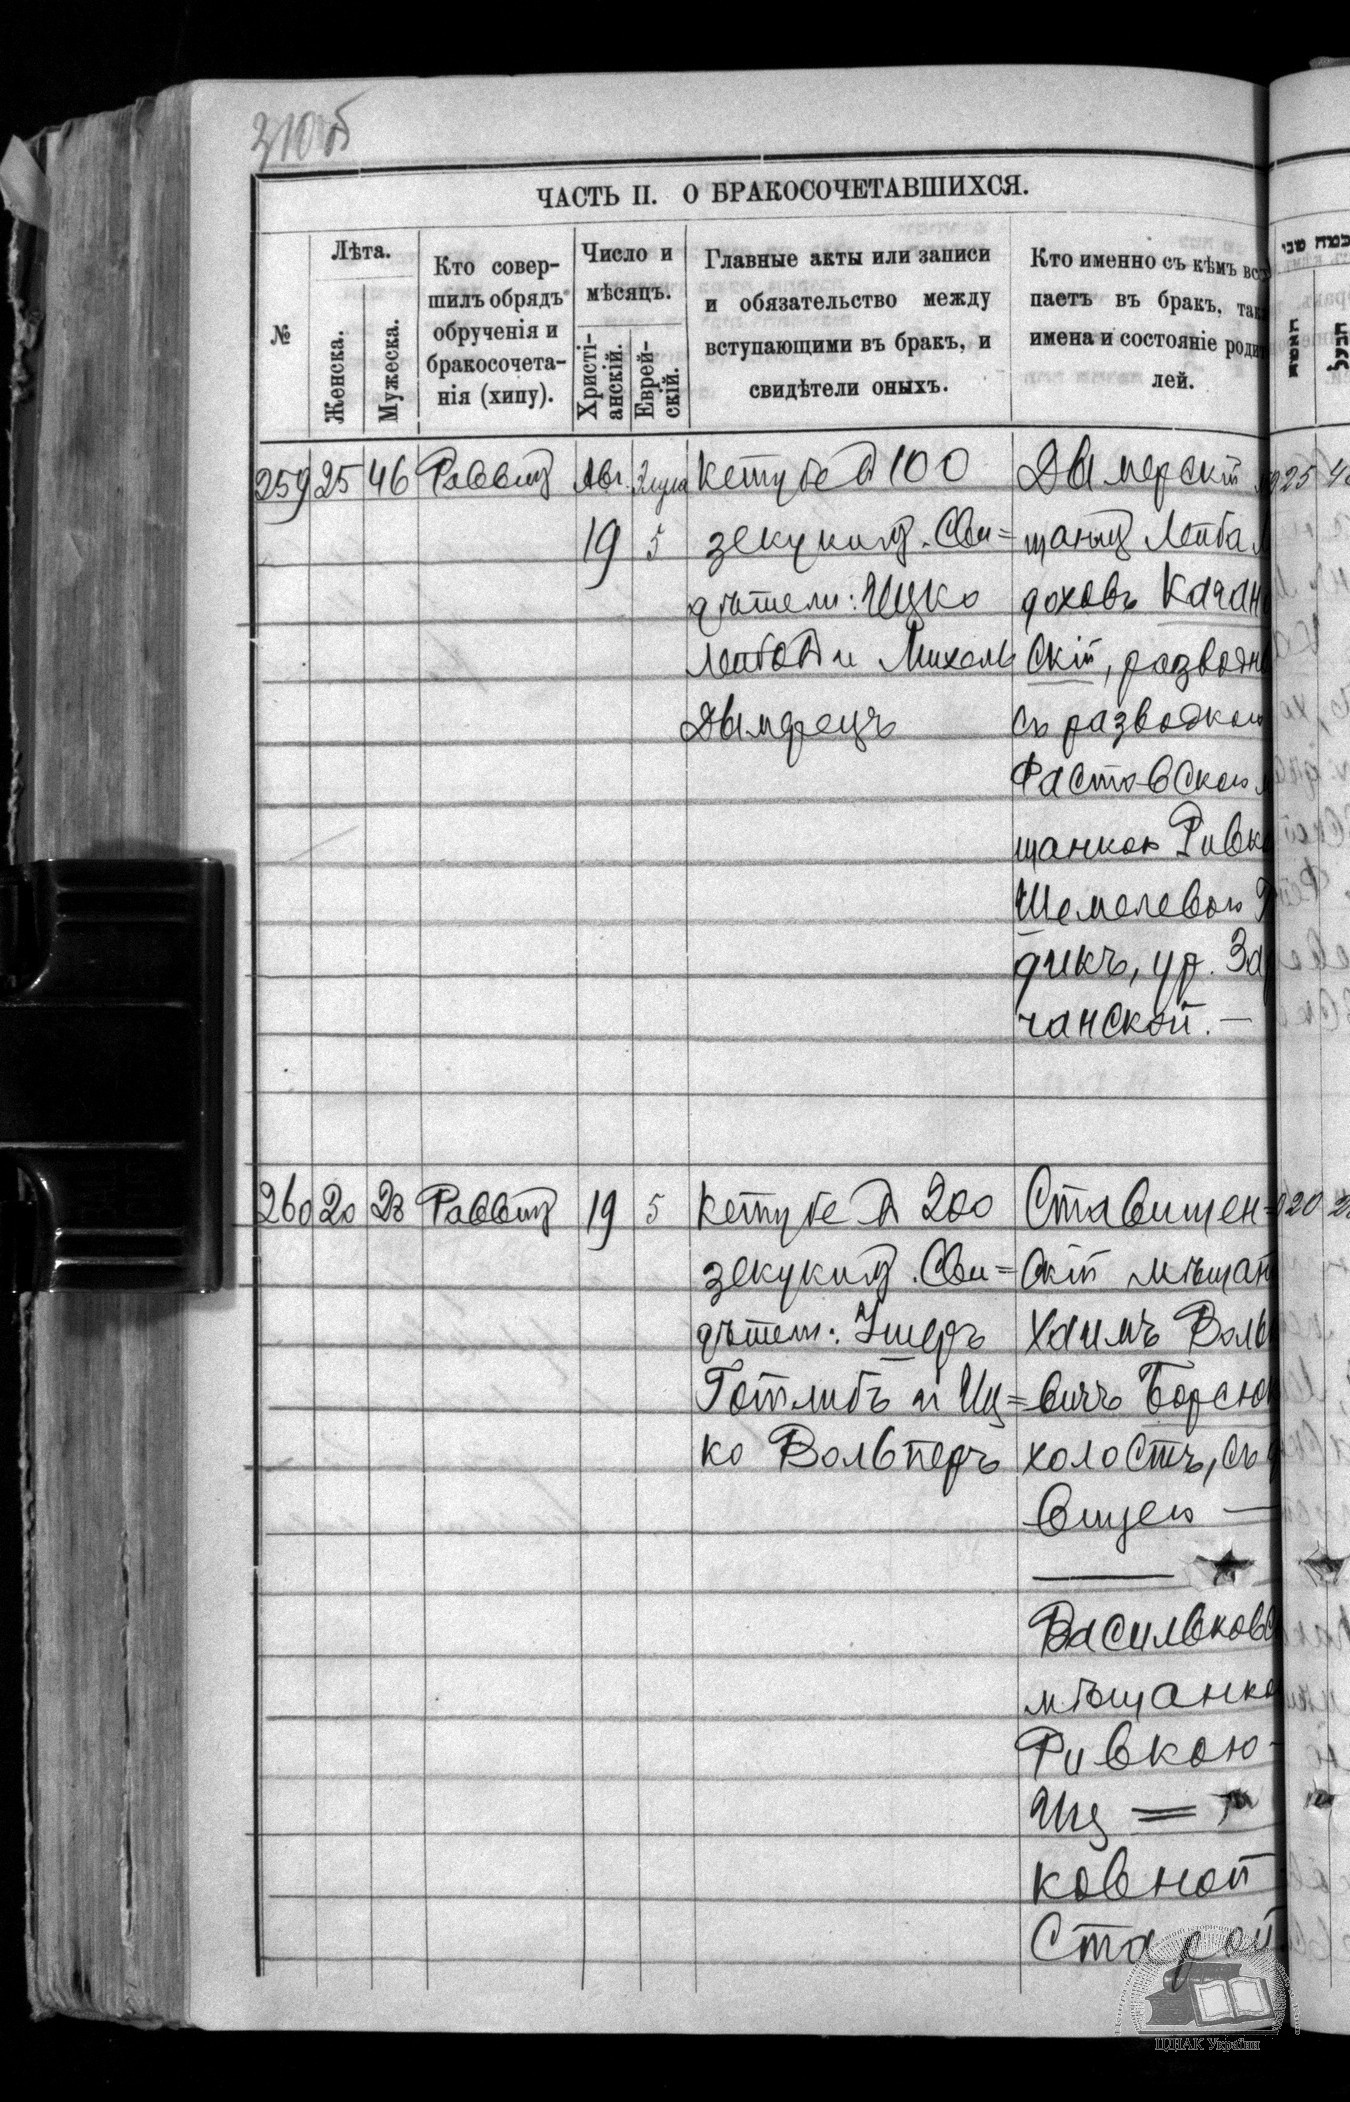 310об
ЧАСТЬ II. О БРАКОСОЧЕТАВШИХСЯ.
№
Лѣта.
Женска.
Мужеска.
Кто совер-
шилъ обрядъ
обрученія и
бракосочета-
нія (хипу).
Число и
мѣсяцъ.
Христі-
анскій.
Еврей-
скій.
Главные акты или записи
и обязательство между
вступающими въ бракъ, и
свидѣтели оныхъ.
Кто именно съ кѣмъ всту
паетъ въ бракъ, так
имена и состояніе родит
лей.
259 25 46 Раввинъ Авг. Элула
19 5
Кетубе въ 100
зекукимъ. Сви=
дѣтели: Ицко
Лейбов и Михель
Дымерецъ
Дымерскій м
щанинъ Лейба М
доховъ Качан
скій, разводн
съ разводкою
Фастовскою м
щанкою Ривко
Шемелевою
дикъ, ур. За
чанской. —
260 20 23 Раввинъ 19 5
Кетубе въ 200
зекукимъ. Сви=
дѣтели: Ушеръ
Готлибъ и Иц=
ко Вольперъ
Ставищен=
скій мѣщан
Хаимъ Воль
вичъ Борсю
холостъ, съ д
вицею —
Васильковс
мѣщанко
Ривкою-
Иц =
ковной
Старой
ЦДІАК України